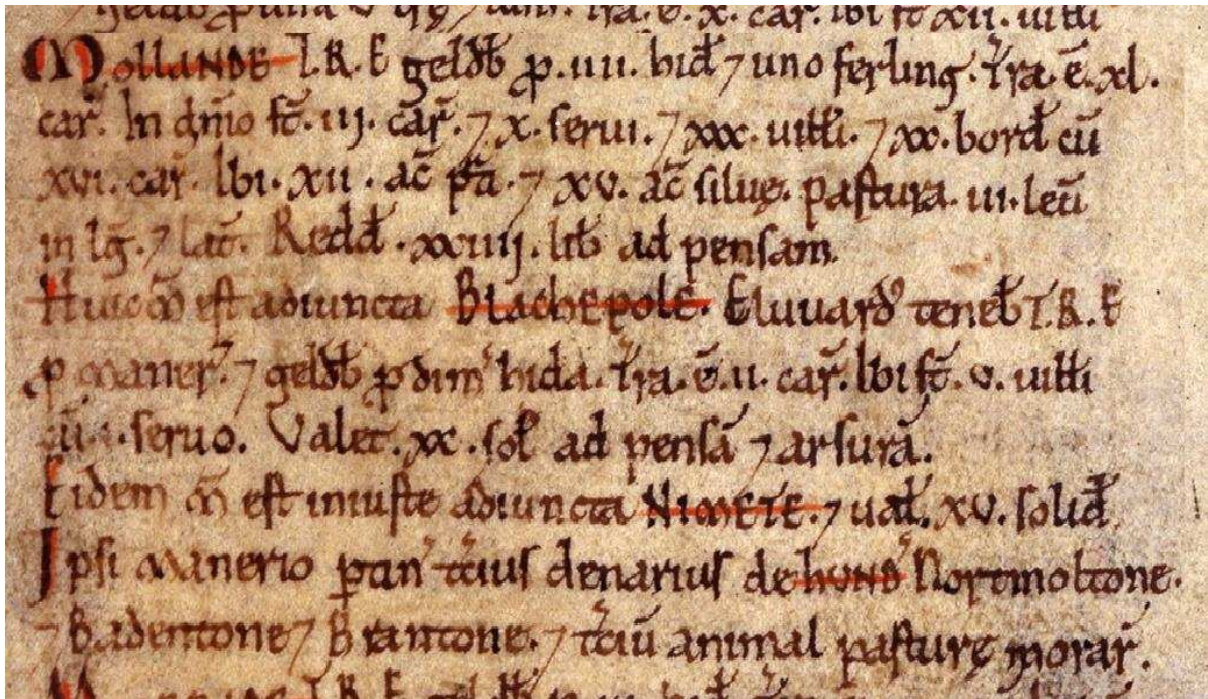 car. ibi st xii. uiłłi
Mollande T.R.E geldb̄ ꝑ .iiii. hid̄ ⁊ uno ferling. Tra. ē. xl.
car̄. In dn̄io st̄. iij. car̄. ⁊ x. serui. ⁊ xxx. uiłłi. ⁊ xx. bord̄ cū
xvi. car̄. Ibi. xii. ac̄ p̄ti. ⁊ xv. ac̄ siluę. pastura. iii. leū
in lḡ. ⁊ lat̄. Redd̄. xxiiij. lib̄ ad pensam.
Huic m̄ est adiuncta Blachepole. Eluuard᾽ teneb̄ T.R.E
ꝓ maner᾽. ⁊ geldb̄ ꝓ dim᾽ hida. Tra. ē. ii. car̄. Ibi st̄. v. uiłłi
cū .i. seruo. Valet. xx. sol̄ ad pensā ⁊ arsurā.
Eidem m̄ est iniuste adiuncta Nimete. ⁊ ual̄. xv. solid̄.
Ipsi manerio ꝑtin᾽ t᾽cius denarius de hund᾽ Nortmoltone.
⁊ Badentone ⁊ Brantone. ⁊ t᾽ciū animal pasturę morar̄.